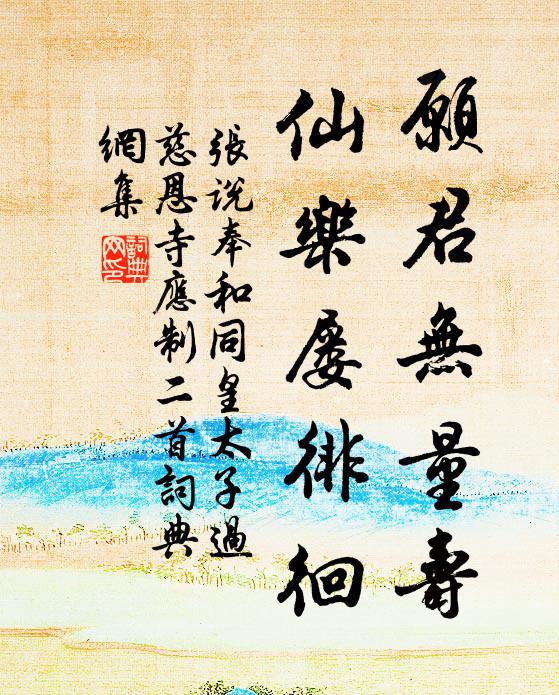 願君無量壽
仙樂屡徘徊
張説奉和同皇太子過
慈恩寺應制二首詞典
網集
詞典
网印